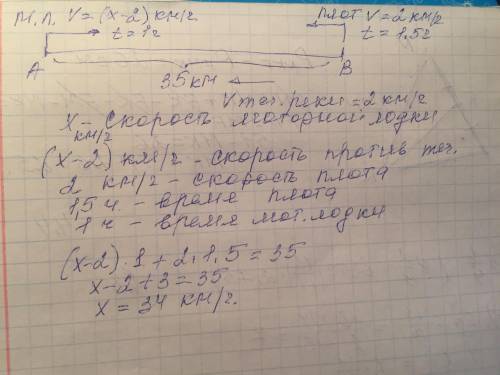 М.Л. V = (x-2) км/г. плот V = 2 км/г
t = 1г t = 1.5г
А В
35 км
V теч. реки = 2 км/г
x км/г - скорость моторной лодки
(x-2) км/г - скорость против теч.
2 км/г - скорость плота
1,5 ч. - время плота
1 ч - время мот. лодки
(x-2) · 1 + 2 · 1,5 = 35
x - 2 + 3 = 35
x = 34 км/г.